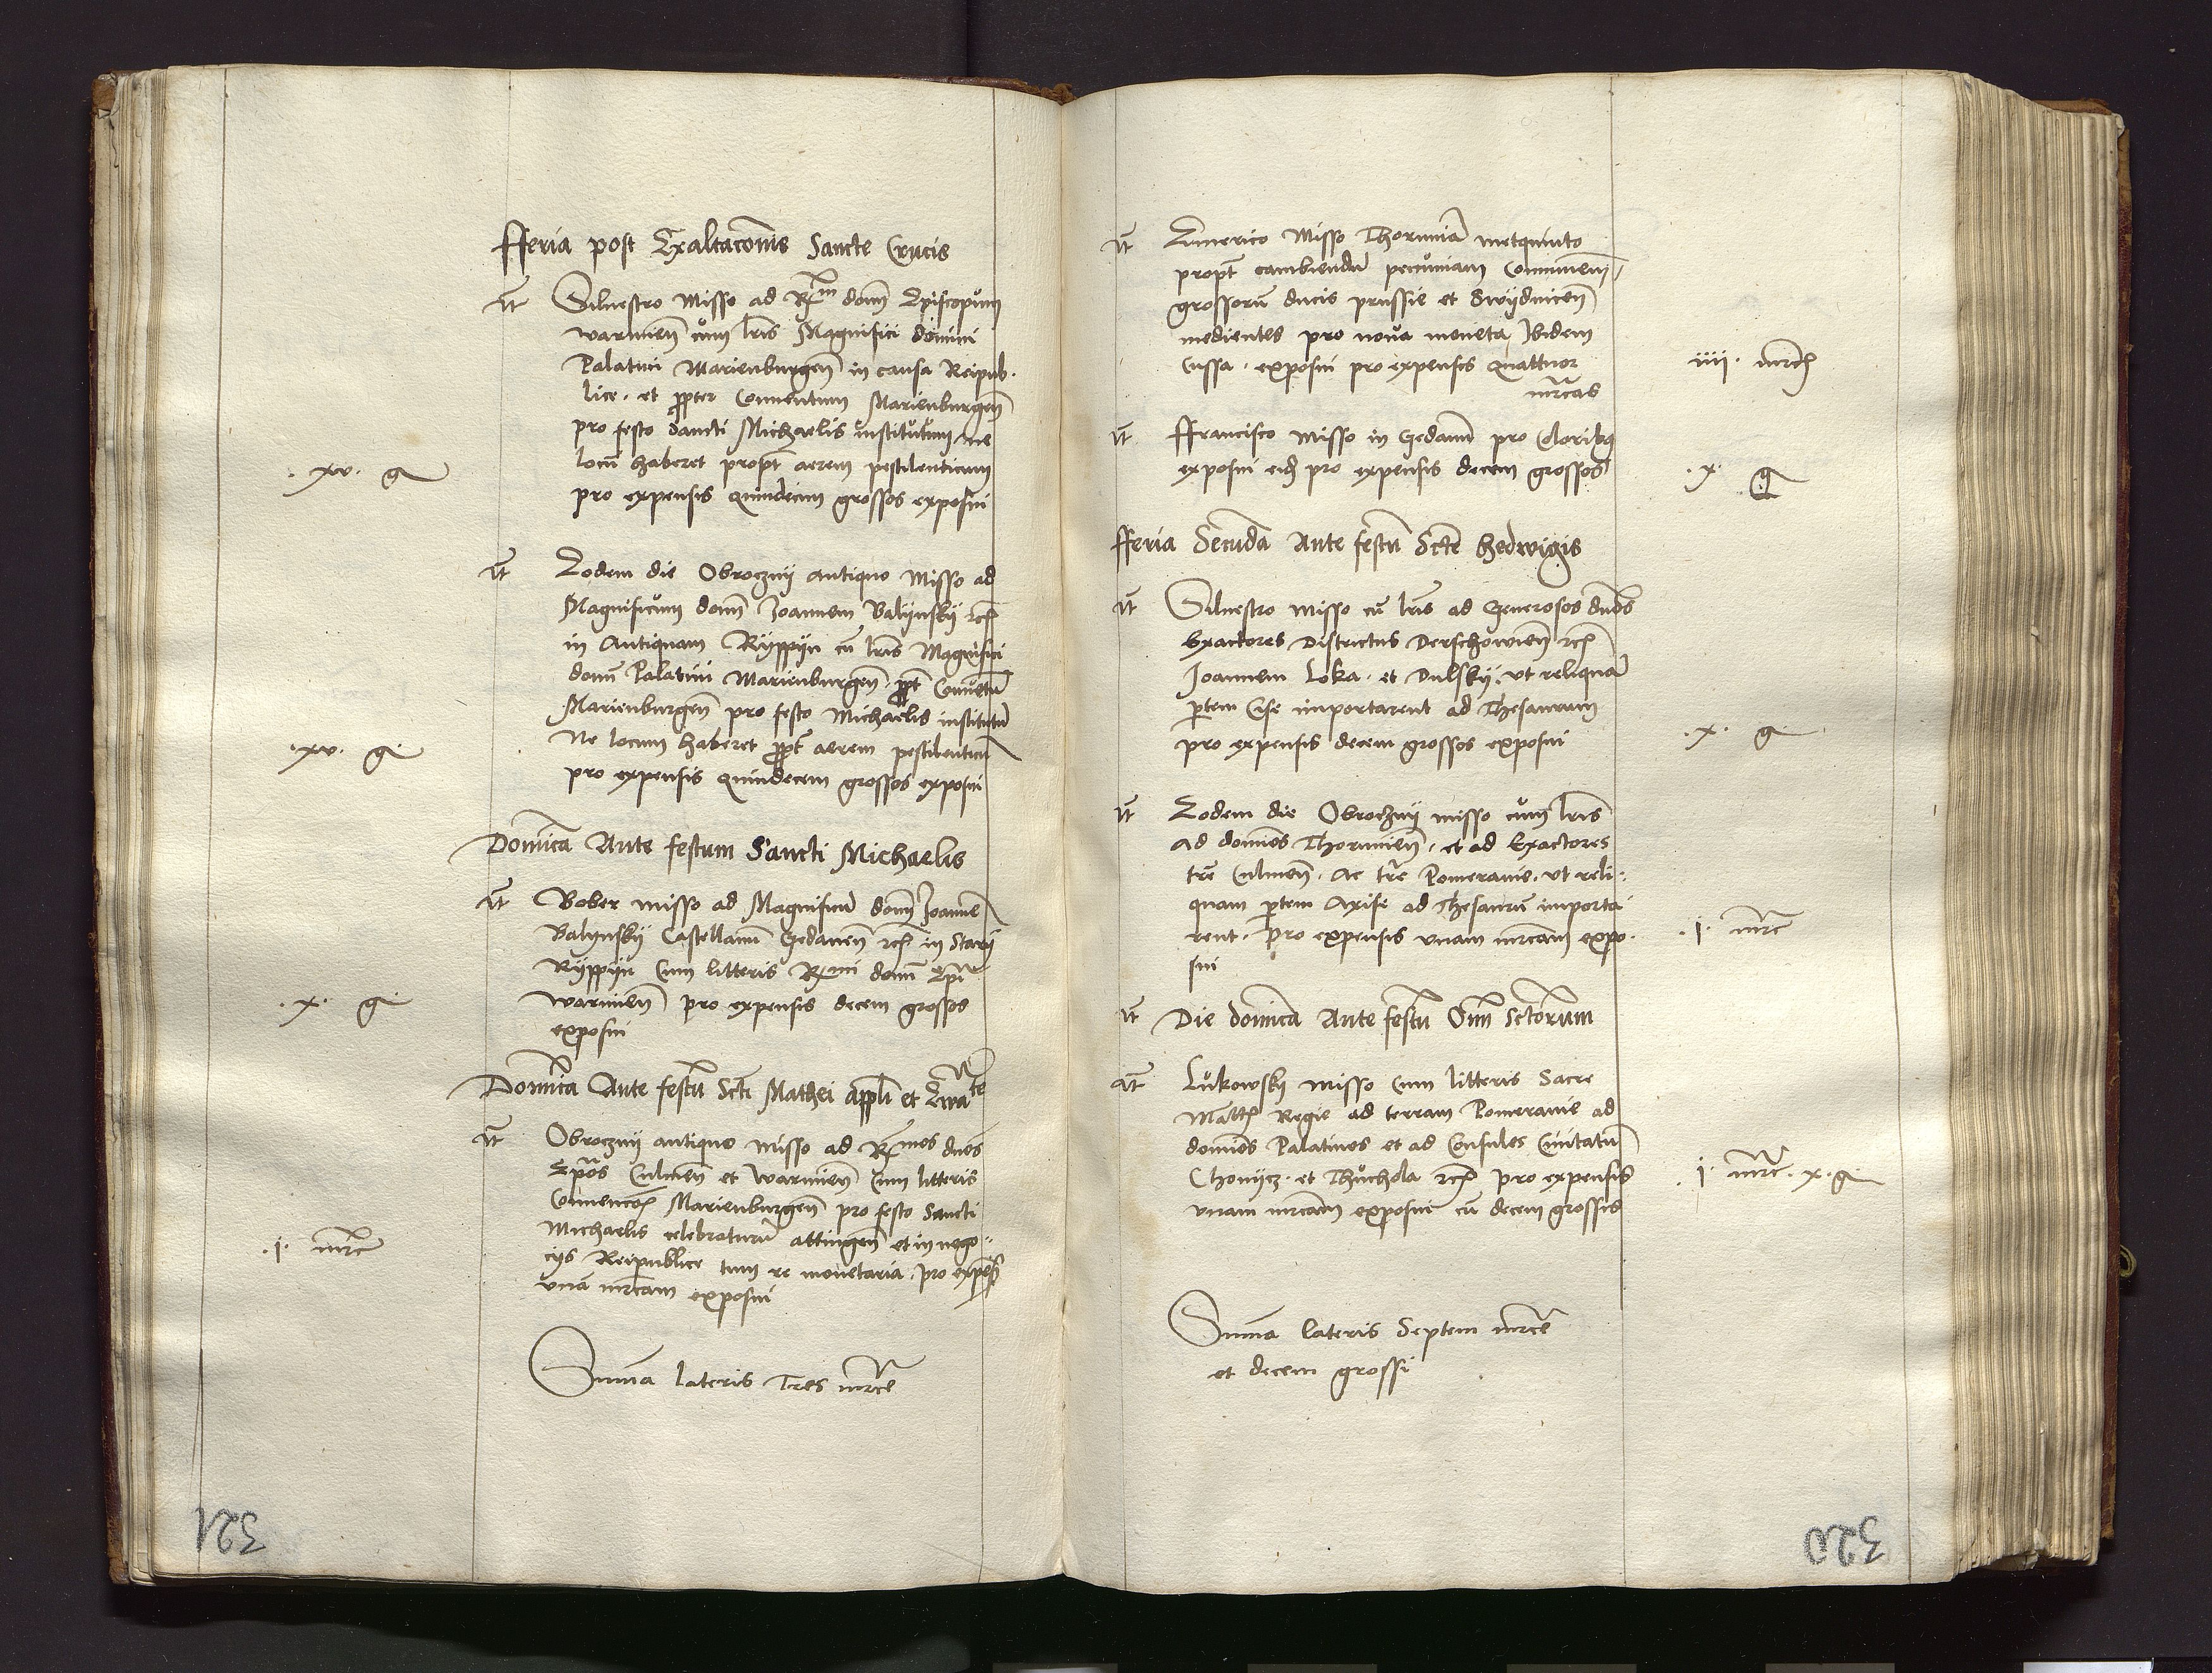 fferia post Exaltaconis Sancte Crucis
It Siluestro Misso ad Rm domm Episcopum
warmien cum lris Magnifici domini
Palatini Marienburgen in causa Reipub.
lice. et propter Conuentum Marienburgen
pro festo Sancti Michaelis institutum ne
locu haberet propt aerem pestilenticum
.xv. g
pro expensis quindecim grossos exposui
It Eodem die Obroczny antiquo Misso ad
Magnificum domm Joannem Balynsky
in Antiquam Ryppyn cu lris Magnifici
domi Palatini Marienburgen. propt Conuetu
Marienburgen pro festo Michaelis institutu
Ne locum haberet propt aerem pestilenticu
.xv. g.
pro expensis quindecem grossos exposui
Domica Ante festum Sancti Michaelis
It Bober misso ad Magnificu domm Joanne
Balynsky Castellanu Gedanen in Stary
Ryppyn Cum litteris Rmi domi Epi
.x. g.
warmien pro expensis decem grossos
exposui
Domica Ante festu Scti Mathei appli et Ewa
It Obroczny antiquo misso ad Rmos dnos
Epos Culmen et warmien Cum litteris
Marienburgen pro festo Sancti
Michaelis celebraturu attingen et in nego-
.j. mrc
cys Reipublice tum re monetaria. pro expes
vna mrcam exposui
Suma lateris Tres mrce
It Emerico Misso Thoruniã metquinto
propt cambiendu pecuniam
grossoru ducis prussie et Swydnicen
medientes pro nova moneta Ibidem
iiij.
Cussa. exposui pro expensis quattuor
mrcas
It ffrancisco misso in Gedanu pro
.x. g
exposui pro expensis decem grossos
fferia Secuda Ante festu Scte Hedwigis
It Siluestro misso cu lris ad Generosos dnos
Exactores Districtus Derschowien
Joannem Loka. et Dulsky. vt reliqua
ptem Cise importarent ad Thesaurum
.x. g.
pro expensis decem grossos exposui
It Eodem die Obroczny misso cum lris
Ad dominos Thorunien. et ad Exactores
tre Culmen. Ac tre Pomeranie. vt reli-
quam ptem Axise ad Thesauru importa
.j. mrc
rent. Pro expensis vnam mrcam expo.
sui
It Die domica Ante festu Omi Sctorum
It Lukowsky misso Cum litteris Sacre
Regie ad terram Pomeranie ad
dominos Palatinos et ad Consules Ciuitatu
.j. mrc. x. g.
Chonycz. et Thuchola pro expensis
vnam mrcam exposui cu decem grossis
Suma lateris Septem mrce
et decem grossi
321
320